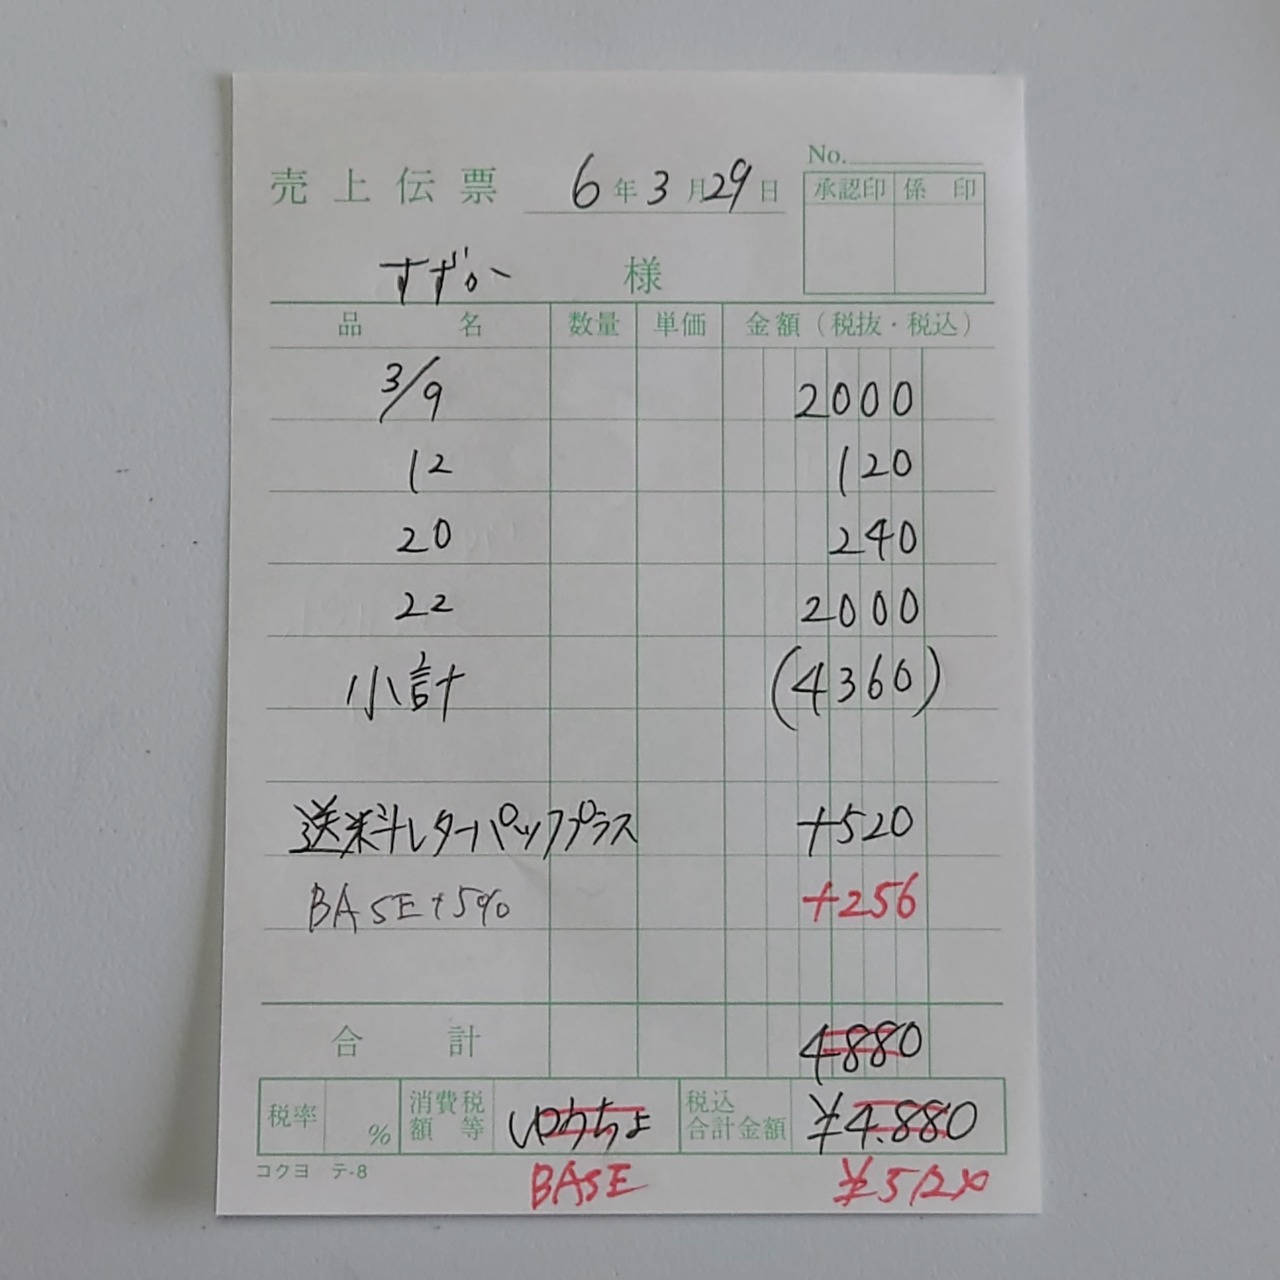 No.
売上伝票 6年3月29日
承認印 係印
すずか 様
品名 数量 単価 金額(税抜・税込)
3/9 2000
12 120
20 240
22 2000
小計 (4360)
送料レターパックプラス +520
BASE+5% +256
合計 4880
税率 % 消費税額等 ゆうちょ 税込合計金額 ¥4.880
コクヨ テ-8 BASE